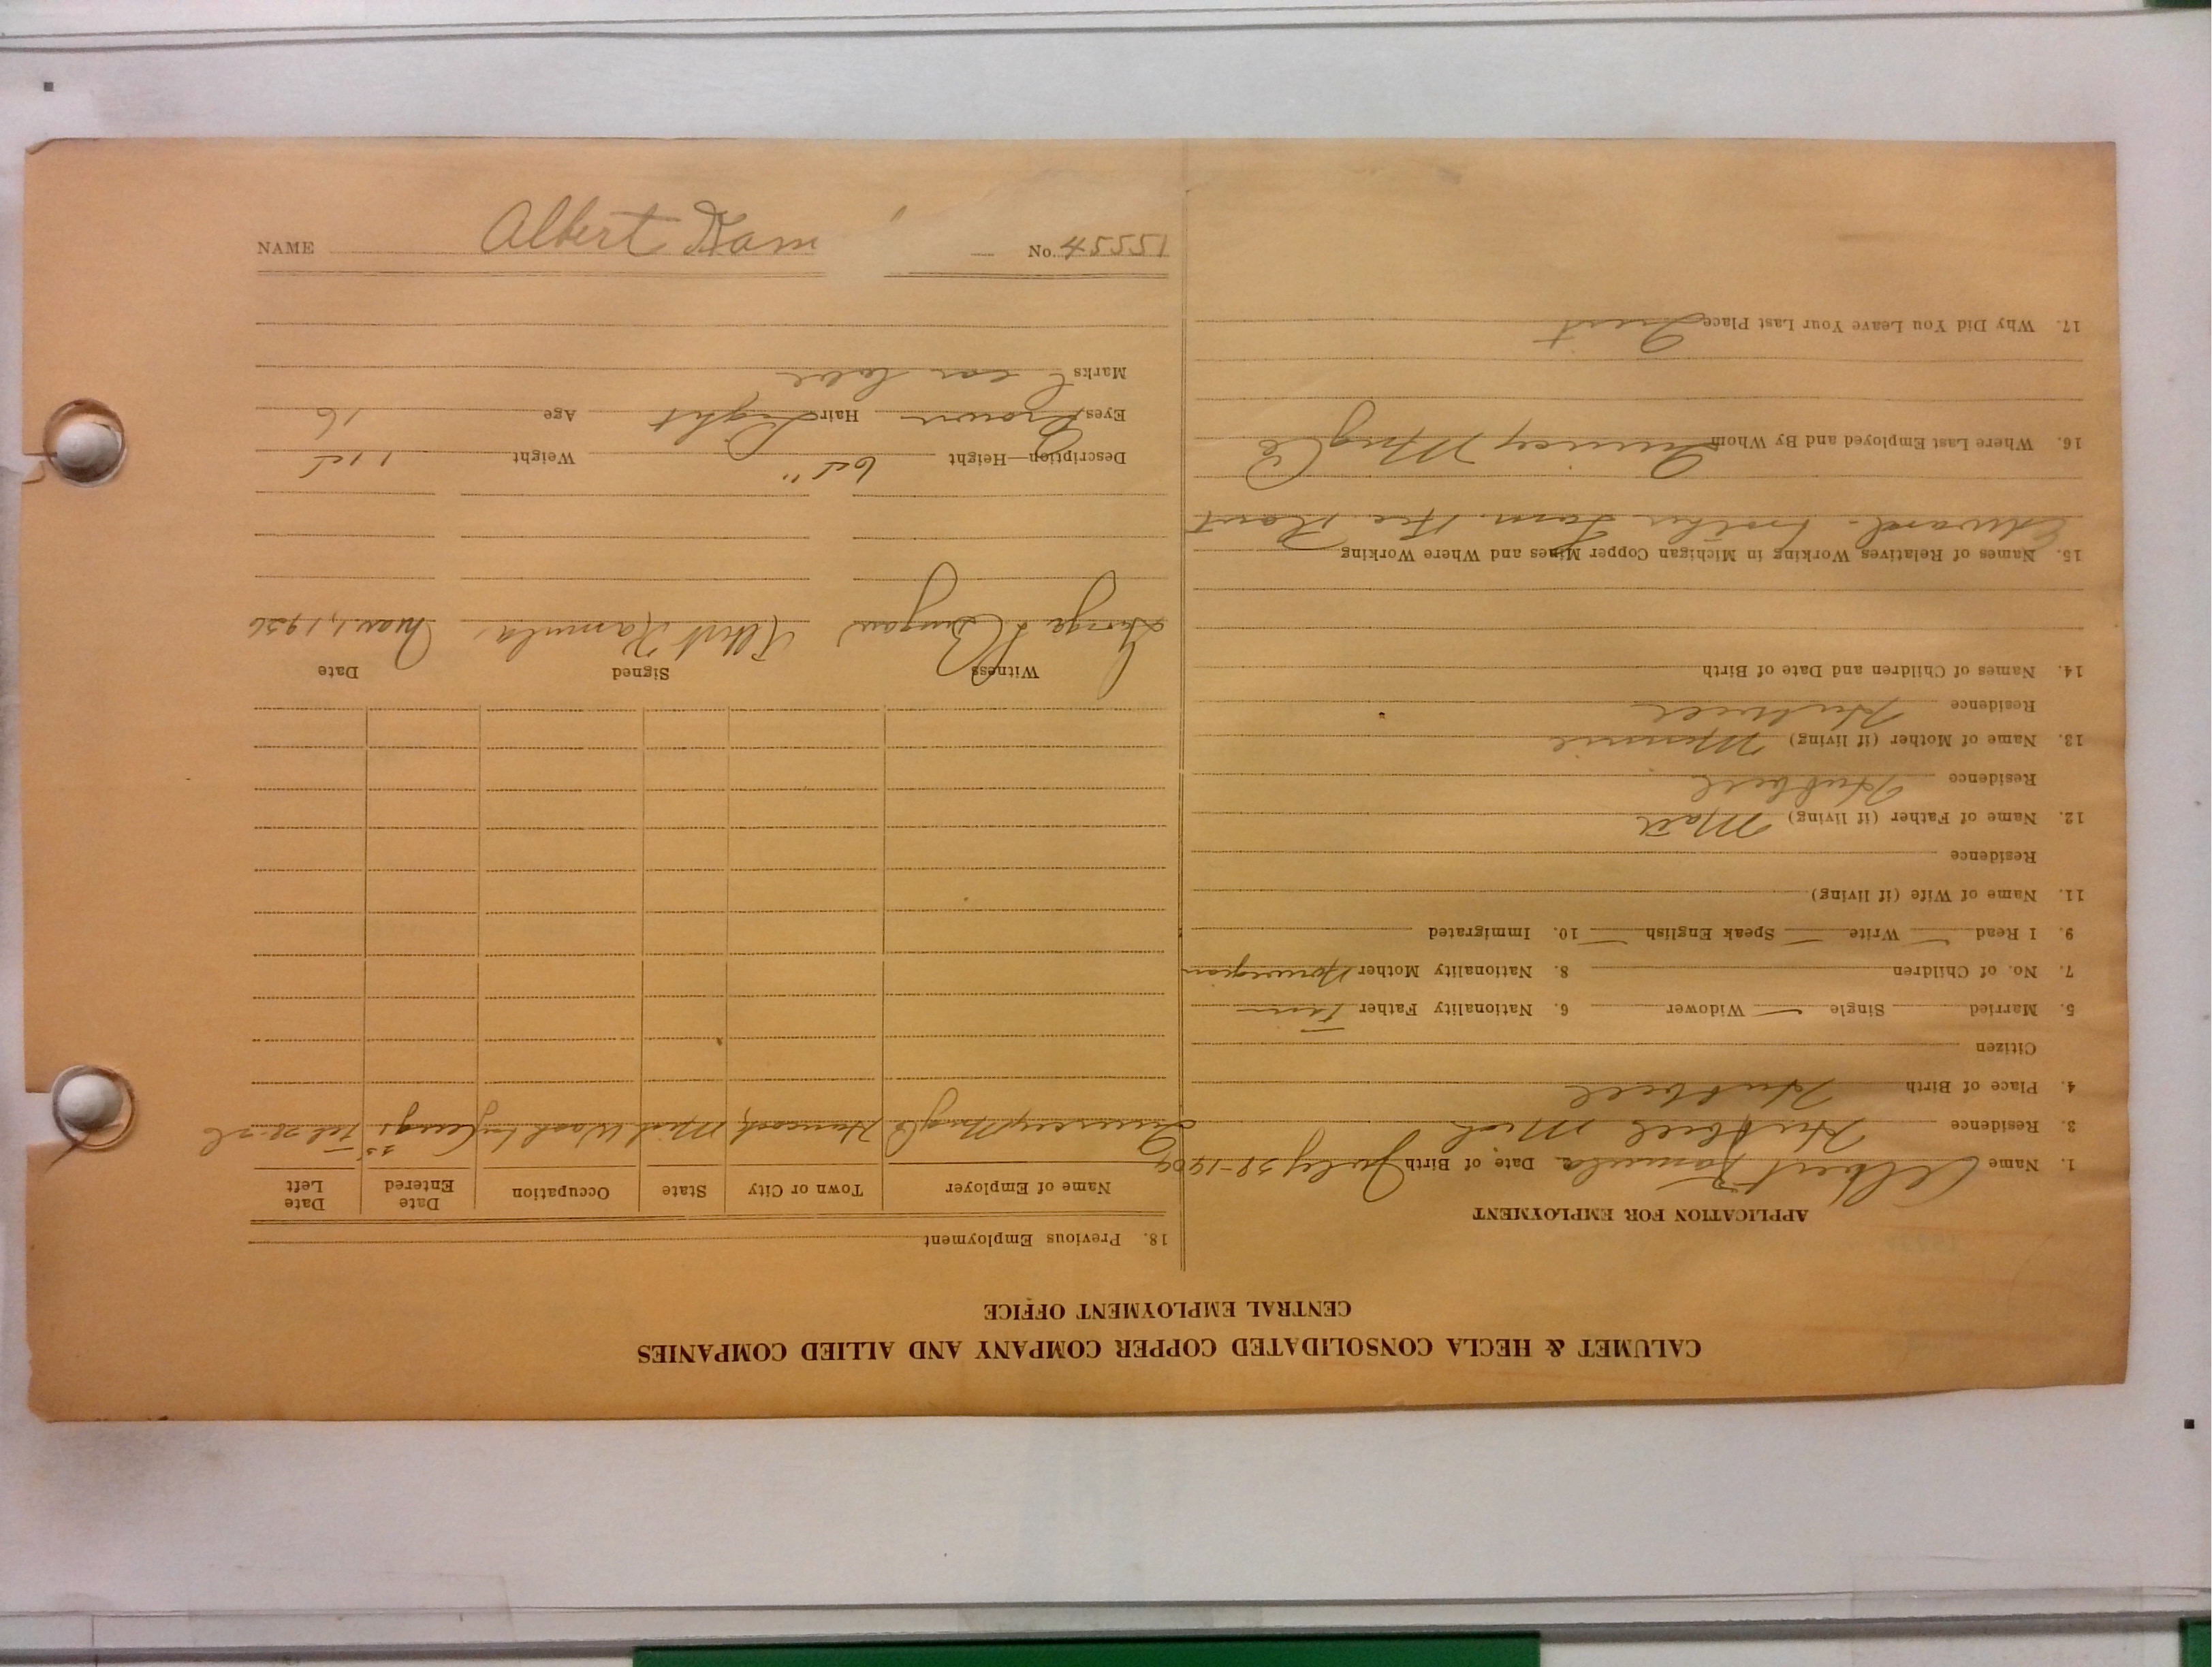 CALUMET & HECLA CONSOLIDATED COPPER COMPANY AND ALLIED COMPANIES
CENTRAL EMPLOYMENT OFFICE
APPLICATION FOR EMPLOYMENT
1. Name Albert Kamula Date of Birth July 28-1909
3. Residence Hubbell Mich
4. Place of Birth Hubbell
Citizen
5. Married Single Widower 6. Nationality Father Finn
7. No. of Children 8. Nationality Mother Norwegian
9. I Read Write Speak English 10. Immigrated
11. Name of Wife (if living)
Residence
12. Name of Father (if living)
Residence Hubbell
13. Name of Mother (if living) Minnie
Residence Hubbell
14. Names of Children and Date of Birth
15. Names of Relatives Working in Michigan Copper Mines and Where Working
Edward - brother Tam. Rec Plant
16. Where Last Employed and By Whom Quincy Mng Co
17. Why Did You Leave Your Last Place Quit
18. Previous Employment
Name of Employer Town or City State Occupation Date Entered Date Left
Quincy Mng Co Hancock Mich Wash Aug 25 Feb 28-26
Witness Signed Date
George Albert Kamula Mar. 1, 1926
Description—Height 65" Weight 115
Eyes Brown Hair Light Age 16
Marks ear lobe
NAME Albert Kam No. 45551